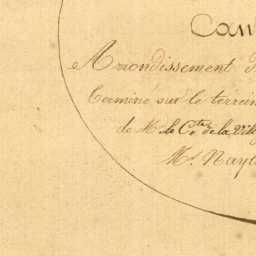 Can
Arrondissement
Terminé sur le terrein
de Mr. le Cte. de la Vill
Mr. Nayl